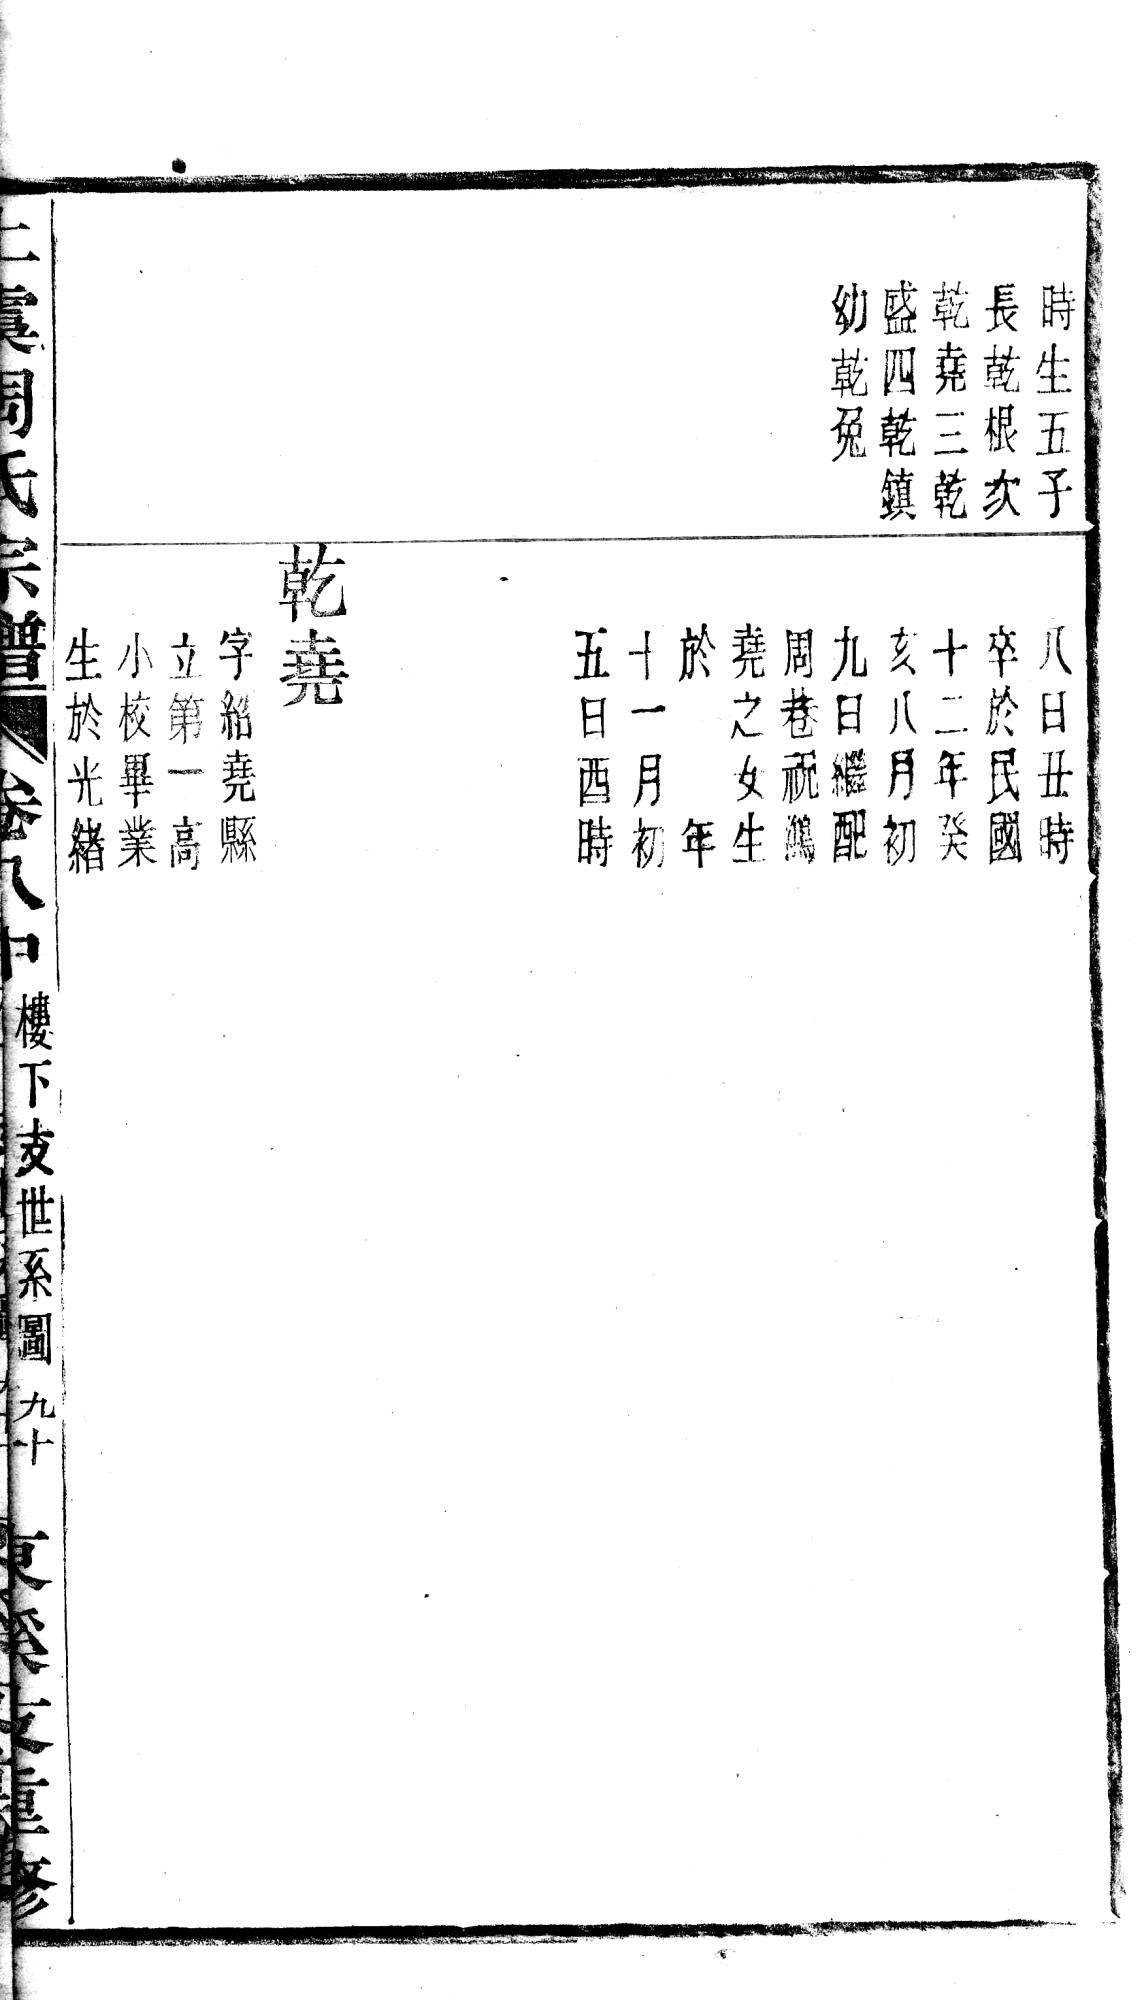 時生五子
長乾根次
乾堯三乾
盛四乾鎮
幼乾兔
八日丑時
卒於民國
十二年癸
亥八月初
九日繼配
周巷祝鴻
堯之女生
於　年
十一月初
五日酉時
乾堯
字紹堯縣
立第一高
小校畢業
生於光緒
上虞周氏宗譜
卷八中
樓下支世系圖
九十
東溪支重修